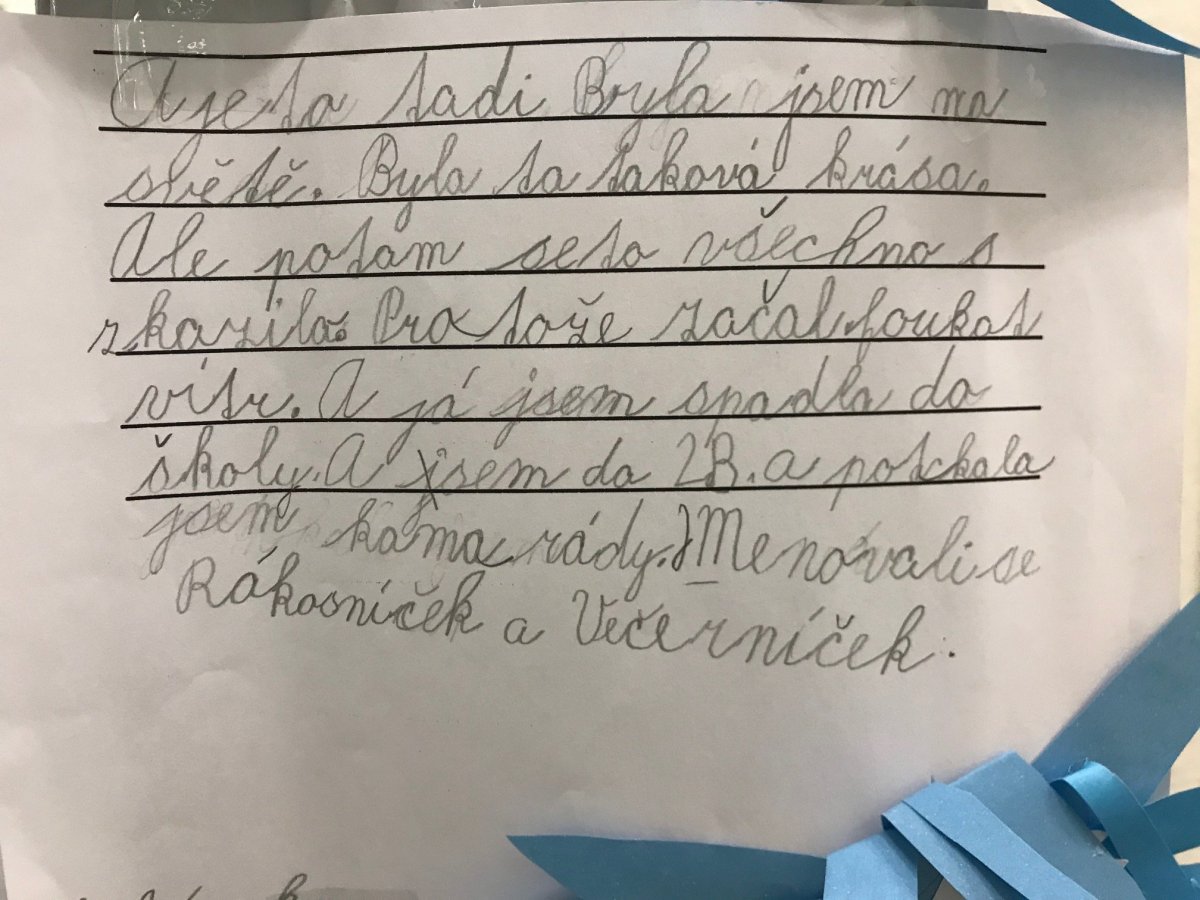 A je to tadi Bryla jsem na
světě. Byla to taková krása.
Ale potom se to všechno s
zkazilo. Pro tože začal foukat
vítr. A já jsem spadla do
školy. A jsem do 2B. a potckala
jsem kama rády. Menovali se
Rákosníček a Večerníček.